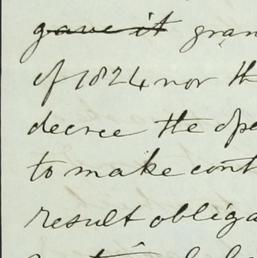 ~~gave it~~ gran
of 1824 nor th
decree the ope
to make cont
result obliga